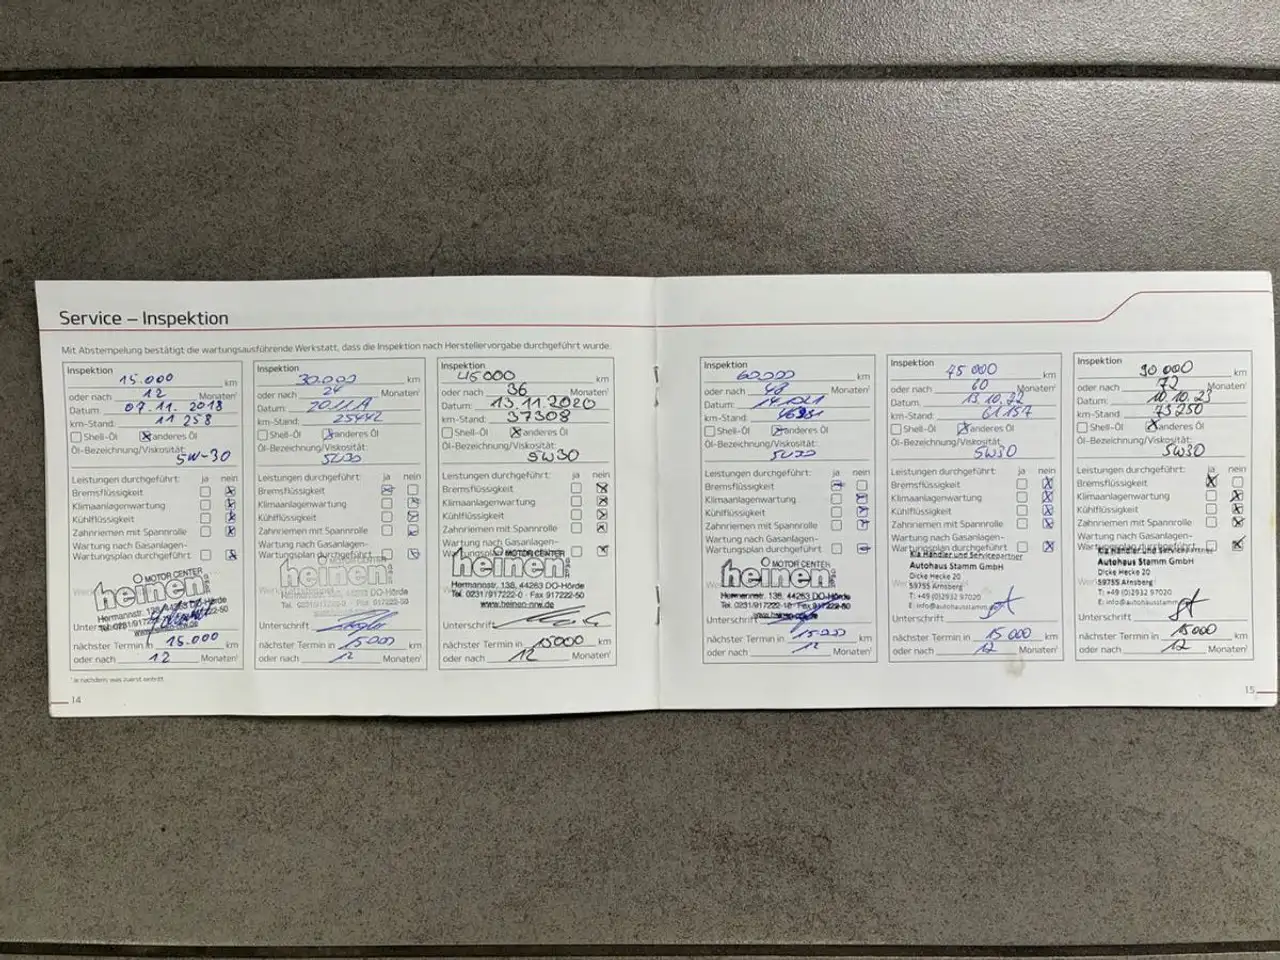 Service – Inspektion
Mit Abstempelung bestätigt die wartungsausführende Werkstatt, dass die Inspektion nach Herstellervorgabe durchgeführt wurde.
Inspektion
15.000 km
oder nach 12 Monaten¹
Datum: 07.11.2018
km-Stand: 11 258
Shell-Öl anderes Öl
Öl-Bezeichnung/Viskosität:
5W-30
Leistungen durchgeführt: ja nein
Bremsflüssigkeit
Klimaanlagenwartung
Kühlflüssigkeit
Zahnriemen mit Spannrolle
Wartung nach Gasanlagen-
Wartungsplan durchgeführt
MOTOR CENTER
heinen
Hermannstr. 138, 44263 DO-Hörde
Unterschrift
nächster Termin in 15.000 km
oder nach 12 Monaten¹
Inspektion
30.000 km
oder nach 24 Monaten¹
Datum:
km-Stand: 25442
Shell-Öl anderes Öl
Öl-Bezeichnung/Viskosität:
5W30
Leistungen durchgeführt: ja nein
Bremsflüssigkeit
Klimaanlagenwartung
Kühlflüssigkeit
Zahnriemen mit Spannrolle
Wartung nach Gasanlagen-
Wartungsplan durchgeführt
MOTOR CENTER
heinen
Hermannstr. 138, 44263 DO-Hörde
Tel. 0231/917222-0 · Fax 917222-50
Unterschrift
nächster Termin in 15000 km
oder nach 12 Monaten¹
Inspektion
45000 km
oder nach 36 Monaten¹
Datum: 13.11.2020
km-Stand: 37308
Shell-Öl anderes Öl
Öl-Bezeichnung/Viskosität:
5W30
Leistungen durchgeführt: ja nein
Bremsflüssigkeit
Klimaanlagenwartung
Kühlflüssigkeit
Zahnriemen mit Spannrolle
Wartung nach Gasanlagen-
Wartungsplan durchgeführt
MOTOR CENTER
heinen
Hermannstr. 138, 44263 DO-Hörde
Tel. 0231/917222-0 · Fax 917222-50
www.heinen-nrw.de
Unterschrift
nächster Termin in 15000 km
oder nach 12 Monaten¹
¹ je nachdem, was zuerst eintritt
14
Inspektion
60000 km
oder nach 48 Monaten¹
Datum:
km-Stand:
Shell-Öl anderes Öl
Öl-Bezeichnung/Viskosität:
5W30
Leistungen durchgeführt: ja nein
Bremsflüssigkeit
Klimaanlagenwartung
Kühlflüssigkeit
Zahnriemen mit Spannrolle
Wartung nach Gasanlagen-
Wartungsplan durchgeführt
MOTOR CENTER
heinen
Hermannstr. 138, 44263 DO-Hörde
Unterschrift
nächster Termin in 15000 km
oder nach 12 Monaten¹
Inspektion
75 000 km
oder nach 60 Monaten¹
Datum: 13.10.22
km-Stand: 61.157
Shell-Öl anderes Öl
Öl-Bezeichnung/Viskosität:
5W30
Leistungen durchgeführt: ja nein
Bremsflüssigkeit
Klimaanlagenwartung
Kühlflüssigkeit
Zahnriemen mit Spannrolle
Wartung nach Gasanlagen-
Wartungsplan durchgeführt
Kia Händler und Servicepartner
Autohaus Stamm GmbH
Dicke Hecke 20
59755 Arnsberg
T: +49 (0)2932 97020
Unterschrift
nächster Termin in 15 000 km
oder nach 12 Monaten¹
Inspektion
90 000 km
oder nach 72 Monaten¹
Datum: 10.10.23
km-Stand: 73250
Shell-Öl anderes Öl
Öl-Bezeichnung/Viskosität:
5W30
Leistungen durchgeführt: ja nein
Bremsflüssigkeit
Klimaanlagenwartung
Kühlflüssigkeit
Zahnriemen mit Spannrolle
Wartung nach Gasanlagen-
Wartungsplan durchgeführt
Kia Händler und Servicepartner
Autohaus Stamm GmbH
Dicke Hecke 20
59755 Arnsberg
T: +49 (0)2932 97020
Unterschrift
nächster Termin in 15 000 km
oder nach 12 Monaten¹
15